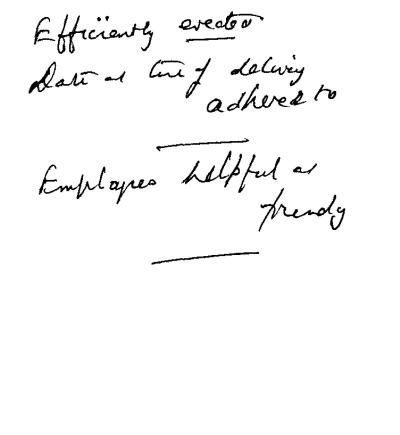 Efficiently erected
Date & time of delivery
adhered to
Employees helpful &
friendly